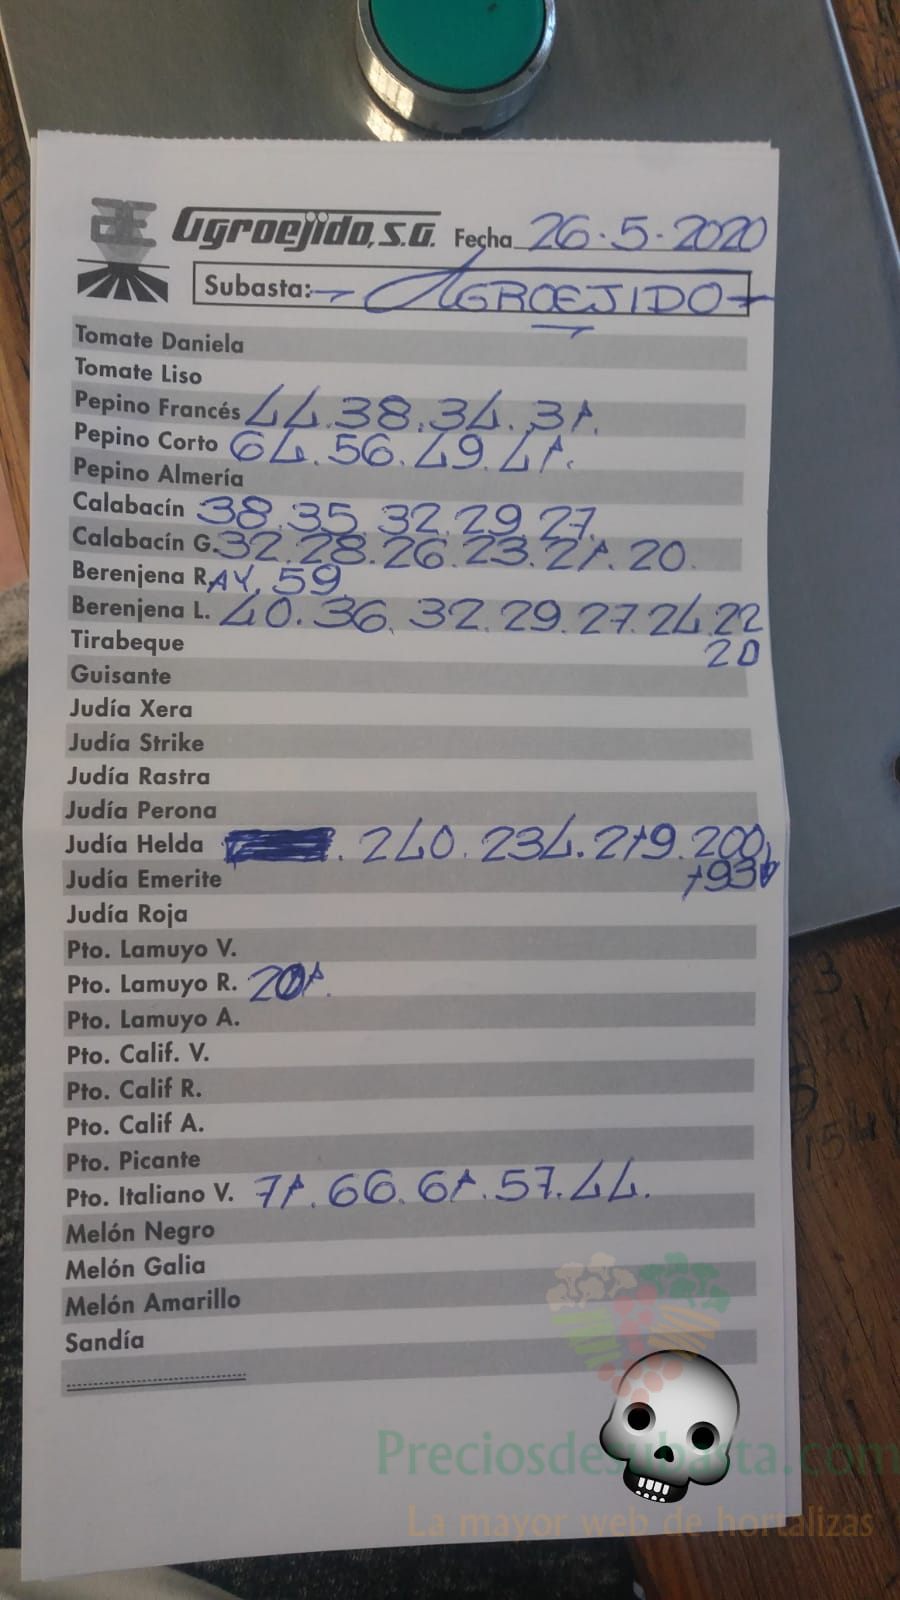 Agroejido, S.A. Fecha 26-5-2020
Subasta: AGROEJIDO
Tomate Daniela
Tomate Liso
Pepino Francés 44.38.34.31.
Pepino Corto 64.56.49.41.
Pepino Almería
Calabacín 38.35.32.29.27.
Calabacín G. 32.28.26.23.21.20.
Berenjena RAY. 59
Berenjena L. 40.36.32.29.27.24.22
20
Tirabeque
Guisante
Judía Xera
Judía Strike
Judía Rastra
Judía Perona
Judía Helda . 240.234.219.200,
193
Judía Emerite
Judía Roja
Pto. Lamuyo V.
Pto. Lamuyo R. 201.
Pto. Lamuyo A.
Pto. Calif. V.
Pto. Calif R.
Pto. Calif A.
Pto. Picante
Pto. Italiano V. 71.66.61.57.44.
Melón Negro
Melón Galia
Melón Amarillo
Sandía
Preciosdesubasta.com
La mayor web de hortalizas